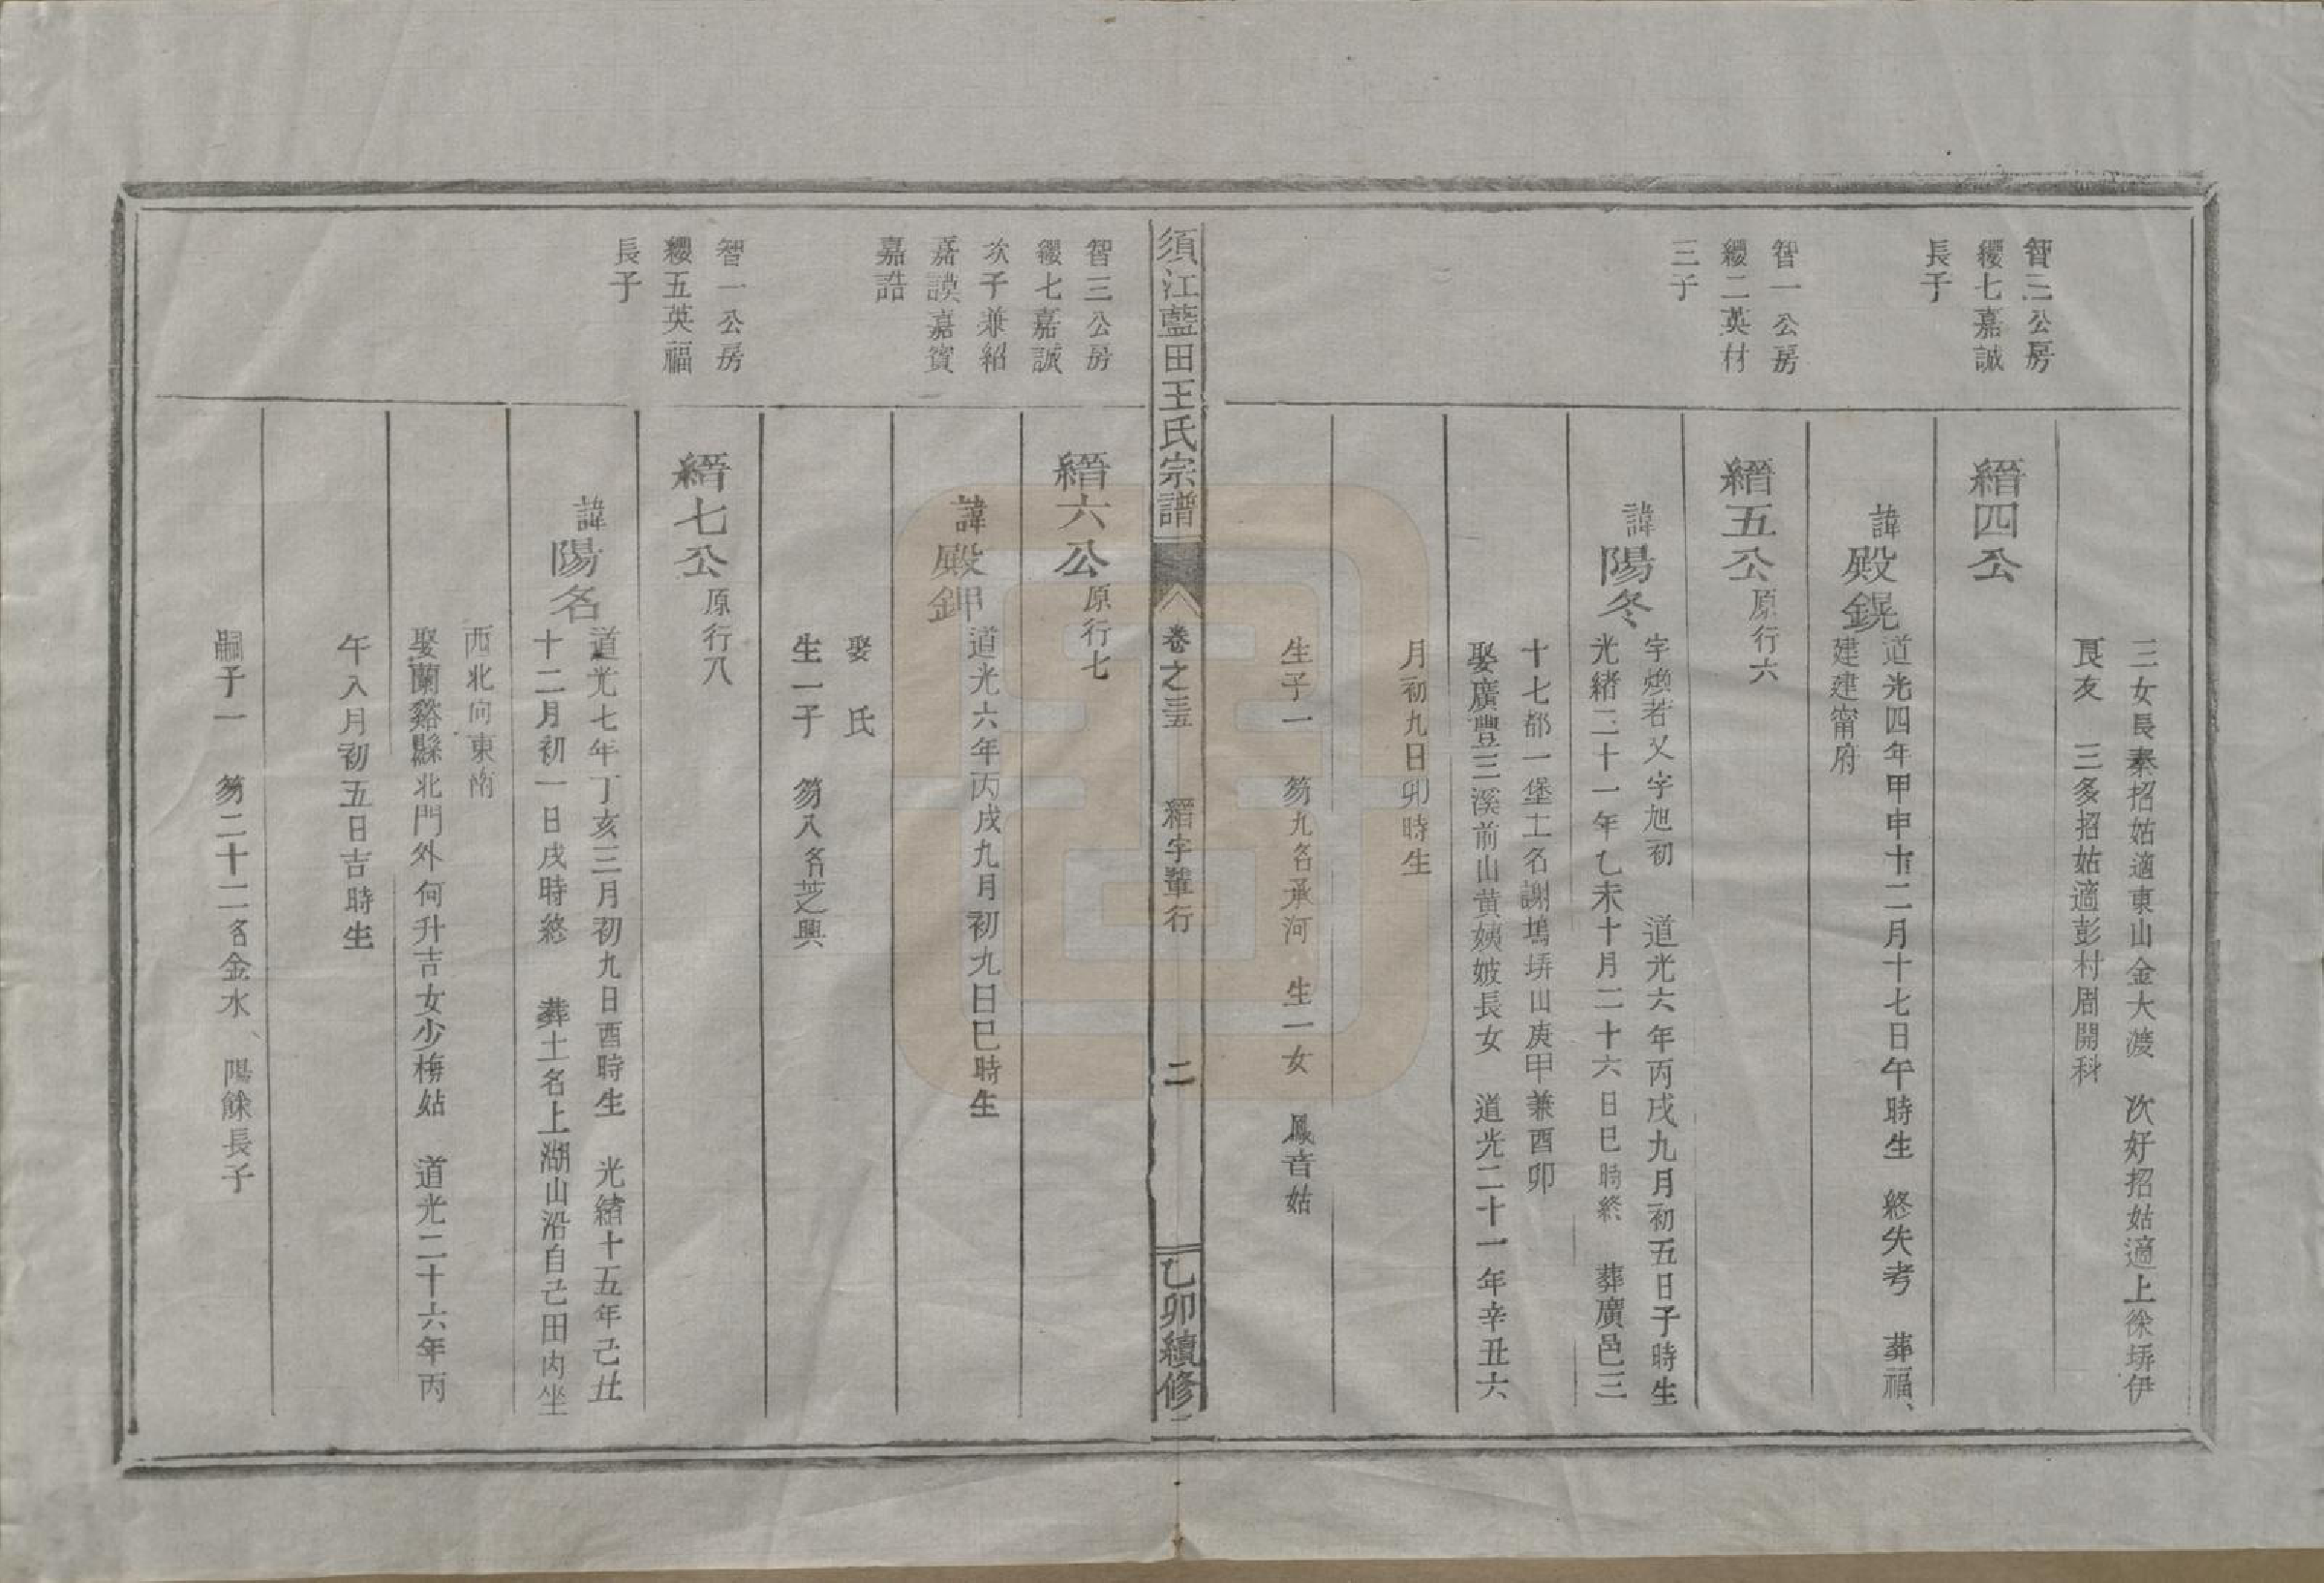 三女長秦招姑適東山金大渡　次好招姑適上徐塝伊
良友　三多招姑適彭村周開科
智三公房
纓七嘉誠
長子
縉四公
諱殿鋧
道光四年甲申十二月十七日午時生　終失考　葬福、
建建甯府
智一公房
纓二英材
三子
縉五公原行六
諱陽冬
字煥若又字旭初　道光六年丙戌九月初五日子時生
光緒二十一年乙未十月二十六日巳時終　葬廣邑三
十七都一堡土名謝塢塝山庚甲兼酉卯
娶廣豐三溪前山黄姨妭長女　道光二十一年辛丑六
月初九日卯時生
生子一　笏九名承河　生一女　鳳音姑
須江藍田王氏宗譜　卷之三五　縉字輩行　二　乙卯續修
智三公房
纓七嘉誠
次子兼紹
嘉謨嘉賓
嘉誥
縉六公原行七
諱殿鉀
道光六年丙戌九月初九日巳時生
娶　氏
生一子　笏八名芝興
智一公房
纓五英福
長子
縉七公原行八
諱陽名
道光七年丁亥三月初九日酉時生　光緒十五年己丑
十二月初一日戌時終　葬土名上湖山沿自己田内坐
西北向東南
娶蘭谿縣北門外何升吉女少梅姑　道光二十六年丙
午八月初五日吉時生
嗣子一　笏二十二名金水、陽餘長子